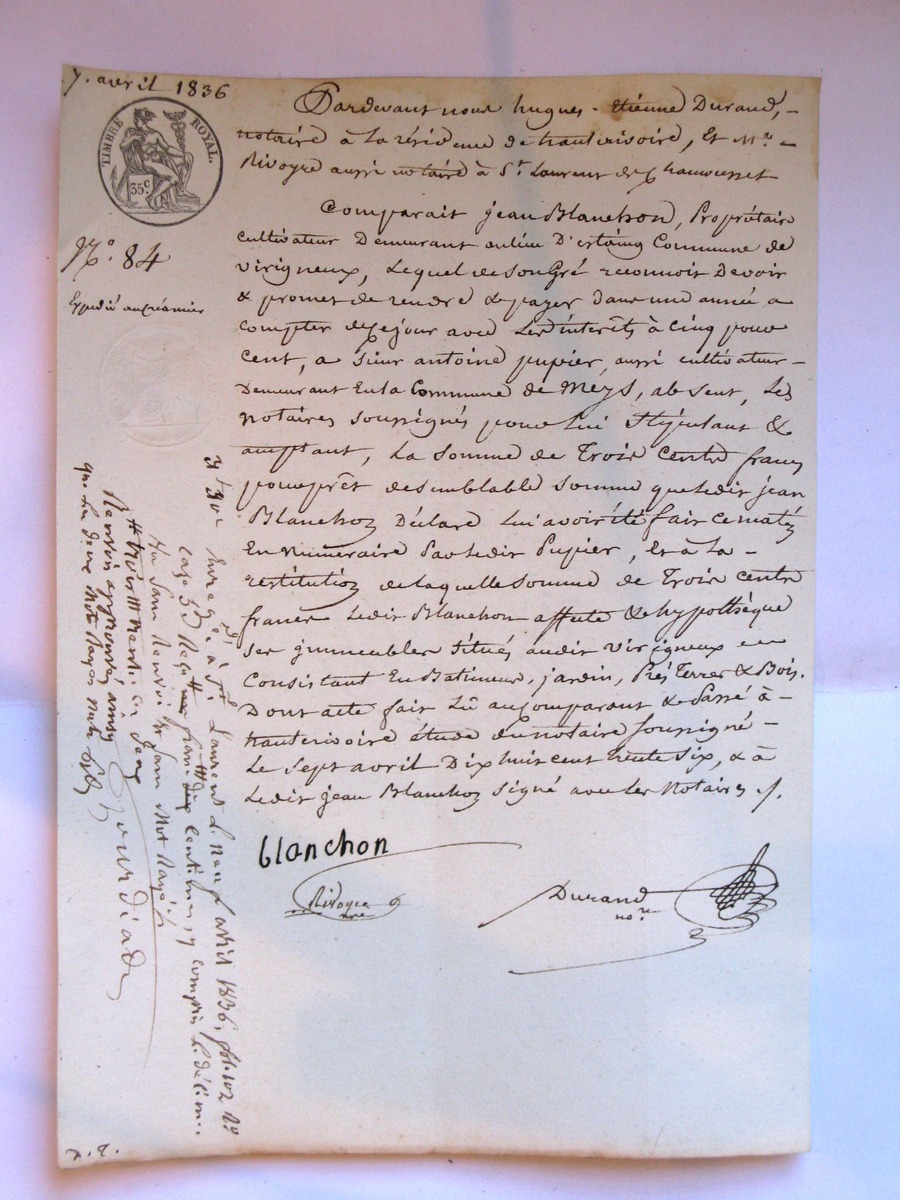 7. avril 1836
TIMBRE ROYAL.
35c.
N.o 84
Expédié au créancier
Pardevant nous hugues-étienne Durand,
notaire à la résidence de hauterivoire, et Me.
Rivoyre aussi notaire à St. Laurent de Chamousset
Comparait jean Blanchon, Propriétaire
cultivateur Demeurant au lieu D'estaing Commune de
virigneux, Lequel de son Gré reconnoit Devoir
& promet de rendre & payer Dans une année a
compter de ce jour avec Les intérêts à Cinq pour
cent, a sieur antoine pupier, aussi cultivateur
Demeurant En la Commune de Meys, absent, Les
notaires soussignés pour Lui stipulant &
acceptant, La somme de Trois Cents francs
pour prêt de semblable somme que ledit jean
Blanchon Déclare Lui avoir été fait ce matin
En numéraire Par ledit Pupier, Et à La
restitution de laquelle somme de Trois cents
francs Ledit Blanchon affecte & hypothèque
ses immeubles situés audit virigneux
Consistant En Batiments, jardin, Prés Terres & Bois.
Dont acte fait Lû au Comparant & Passé à
hauterivoire étude du notaire soussigné
Le sept avril Dix huit cent trente six, & à
Ledit jean Blanchon signé avec Les Notaires ./.
blanchon
Rivoyre
nre
Durand
nore
Enregé. à St Laurent le neuf avril 1836, fol. 102 Ro
case 5 Reçu francs dix centimes, y compris le décime.
Un sans Renvoi & sans Mot Rayé
Renvoi approuvé ainsi
que les deux Mots Rayés nuls